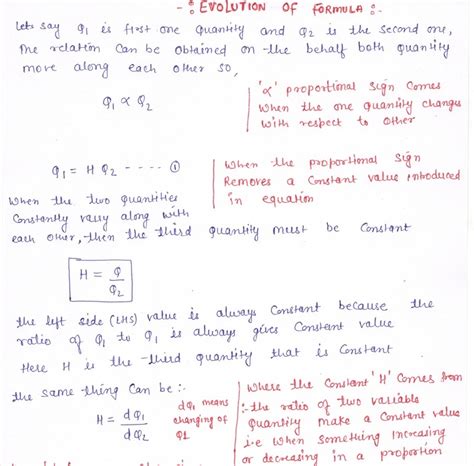 -: EVOLUTION OF FORMULA :-
Lets say Q1 is first one Quantity and Q2 is the second one,
The relation Can be Obtained on the behalf both Quantity
move along each other so,
Q1 ∝ Q2
'∝' proportional Sign Comes
When the one Quantity changes
With respect to Other
Q1 = H Q2 ---- ①
When the proportional Sign
Removes a Constant value introduced
in equation
When the two quantities
Constantly vary along with
each other, then the third Quantity must be Constant
H = Q/Q2
the left side (LHS) value is always Constant because the
ratio of Q1 to Q2 is always gives Constant value
Here H is the third Quantity that is Constant
the same thing Can be :-
H = dQ1/dQ2
dQ1 means
changing of
Q1
Where the Constant 'H' Comes from
:- the ratio of two variable
Quantity make a Constant value
i.e When Something Increasing
or decreasing in a proportion